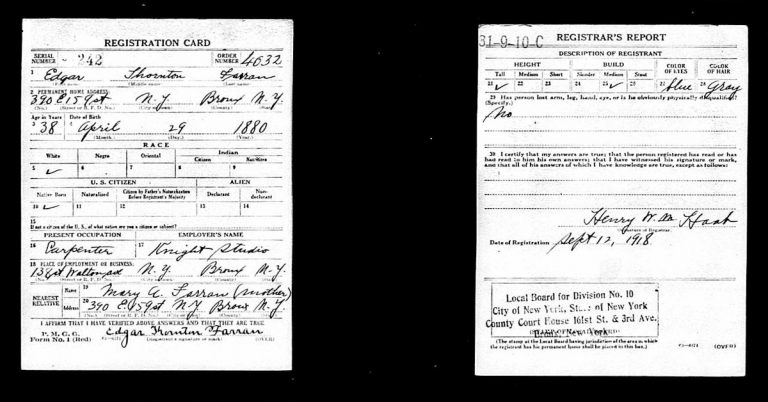 REGISTRATION CARD
SERIAL NUMBER - 242 ORDER NUMBER 4032
1 Edgar Thornton Farran
(Middle name) (Last name)
2 PERMANENT HOME ADDRESS:
390 E 159 st N.Y. Bronx N.Y.
(No.) (Street or R. F. D. No.) (City or town) (County) (State)
Age in Years Date of Birth
3 38 4 April 29 1880
(Month.) (Day.) (Year.)
RACE
White Negro Oriental Indian
Citizen Noncitizen
5 ✓ 6 7 8 9
U. S. CITIZEN ALIEN
Native Born Naturalized Citizen by Father's Naturalization Before Registrant's Majority Declarant Non-declarant
10 ✓ 11 12 13 14
15
If not a citizen of the U. S., of what nation are you a citizen or subject?
PRESENT OCCUPATION EMPLOYER'S NAME
16 Carpenter 17 Knight Studio
18 PLACE OF EMPLOYMENT OR BUSINESS:
138 st Walton N.Y. Bronx N.Y.
(No.) (Street or R. F. D. No.) (City or town) (County) (State)
NEAREST RELATIVE
Name 19 Mary A. Farran (mother)
Address 20 390 E. 159 st N.Y. Bronx N.Y.
I AFFIRM THAT I HAVE VERIFIED ABOVE ANSWERS AND THAT THEY ARE TRUE
P. M. G. O.
Form No. 1 (Red) Edgar Thornton Farran
(Registrant's signature or mark) (OVER)
REGISTRAR'S REPORT
31-9-10-C
DESCRIPTION OF REGISTRANT
HEIGHT BUILD COLOR OF EYES COLOR OF HAIR
Tall Medium Short Slender Medium Stout
21 ✓ 22 23 24 25 ✓ 26 27 blue 28 Gray
29 Has person lost arm, leg, hand, eye, or is he obviously physically disqualified?
(Specify.)
No
30 I certify that my answers are true; that the person registered has read or has
had read to him his own answers; that I have witnessed his signature or mark,
and that all of his answers of which I have knowledge are true, except as follows:
Henry W. M.
(Signature of Registrar)
Date of Registration Sept 12, 1918
Local Board for Division No. 10
City of New York, State of New York
County Court House 161st St. & 3rd Ave.
Bronx, New York
(The stamp of the Local Board having jurisdiction of the area in which
the registrant has his permanent home shall be placed in this box.)
(OVER)